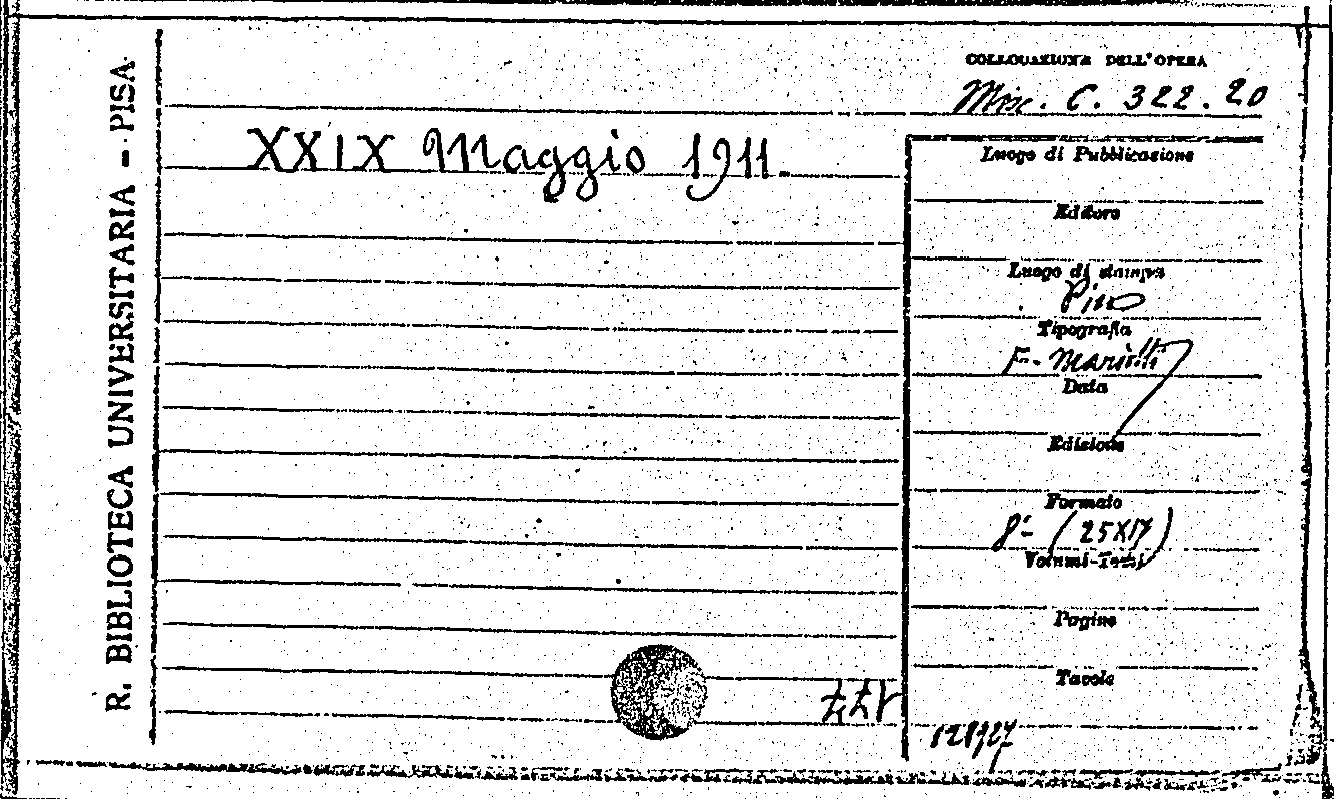 R. BIBLIOTECA UNIVERSITARIA - PISA
COLLOCAZIONE DELL'OPERA
Misc. C. 322.20
XXIX Maggio 1911.
Luogo di Pubblicazione
Editore
Luogo di stampa
Pisa
Tipografia
F. Mariotti
Data
Edizione
Formato
8º (25X17)
Volumi-Tomi
Pagine
Tavole